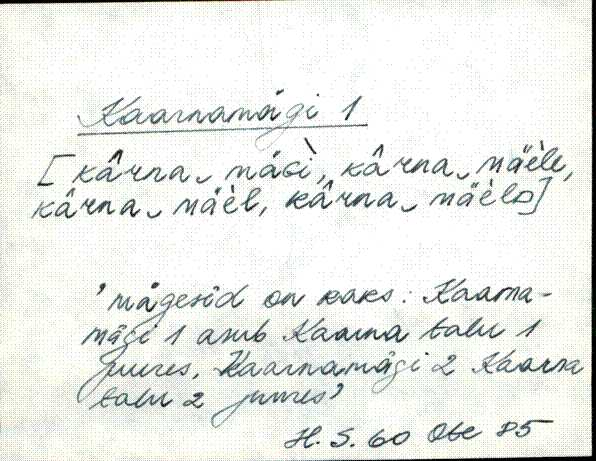 Kaarnamägi 1
[kârna‿mäɢì, kârna‿mäèle,
kârna‿mäèl, kârna‿mäèlᴅ]
'mägesid on kaks: Kaarna-
mägi 1 asub Kaarna talu 1
juures, Kaarnamägi 2 Kaarna
talu 2 juures'
H. S. 60 Ote 85